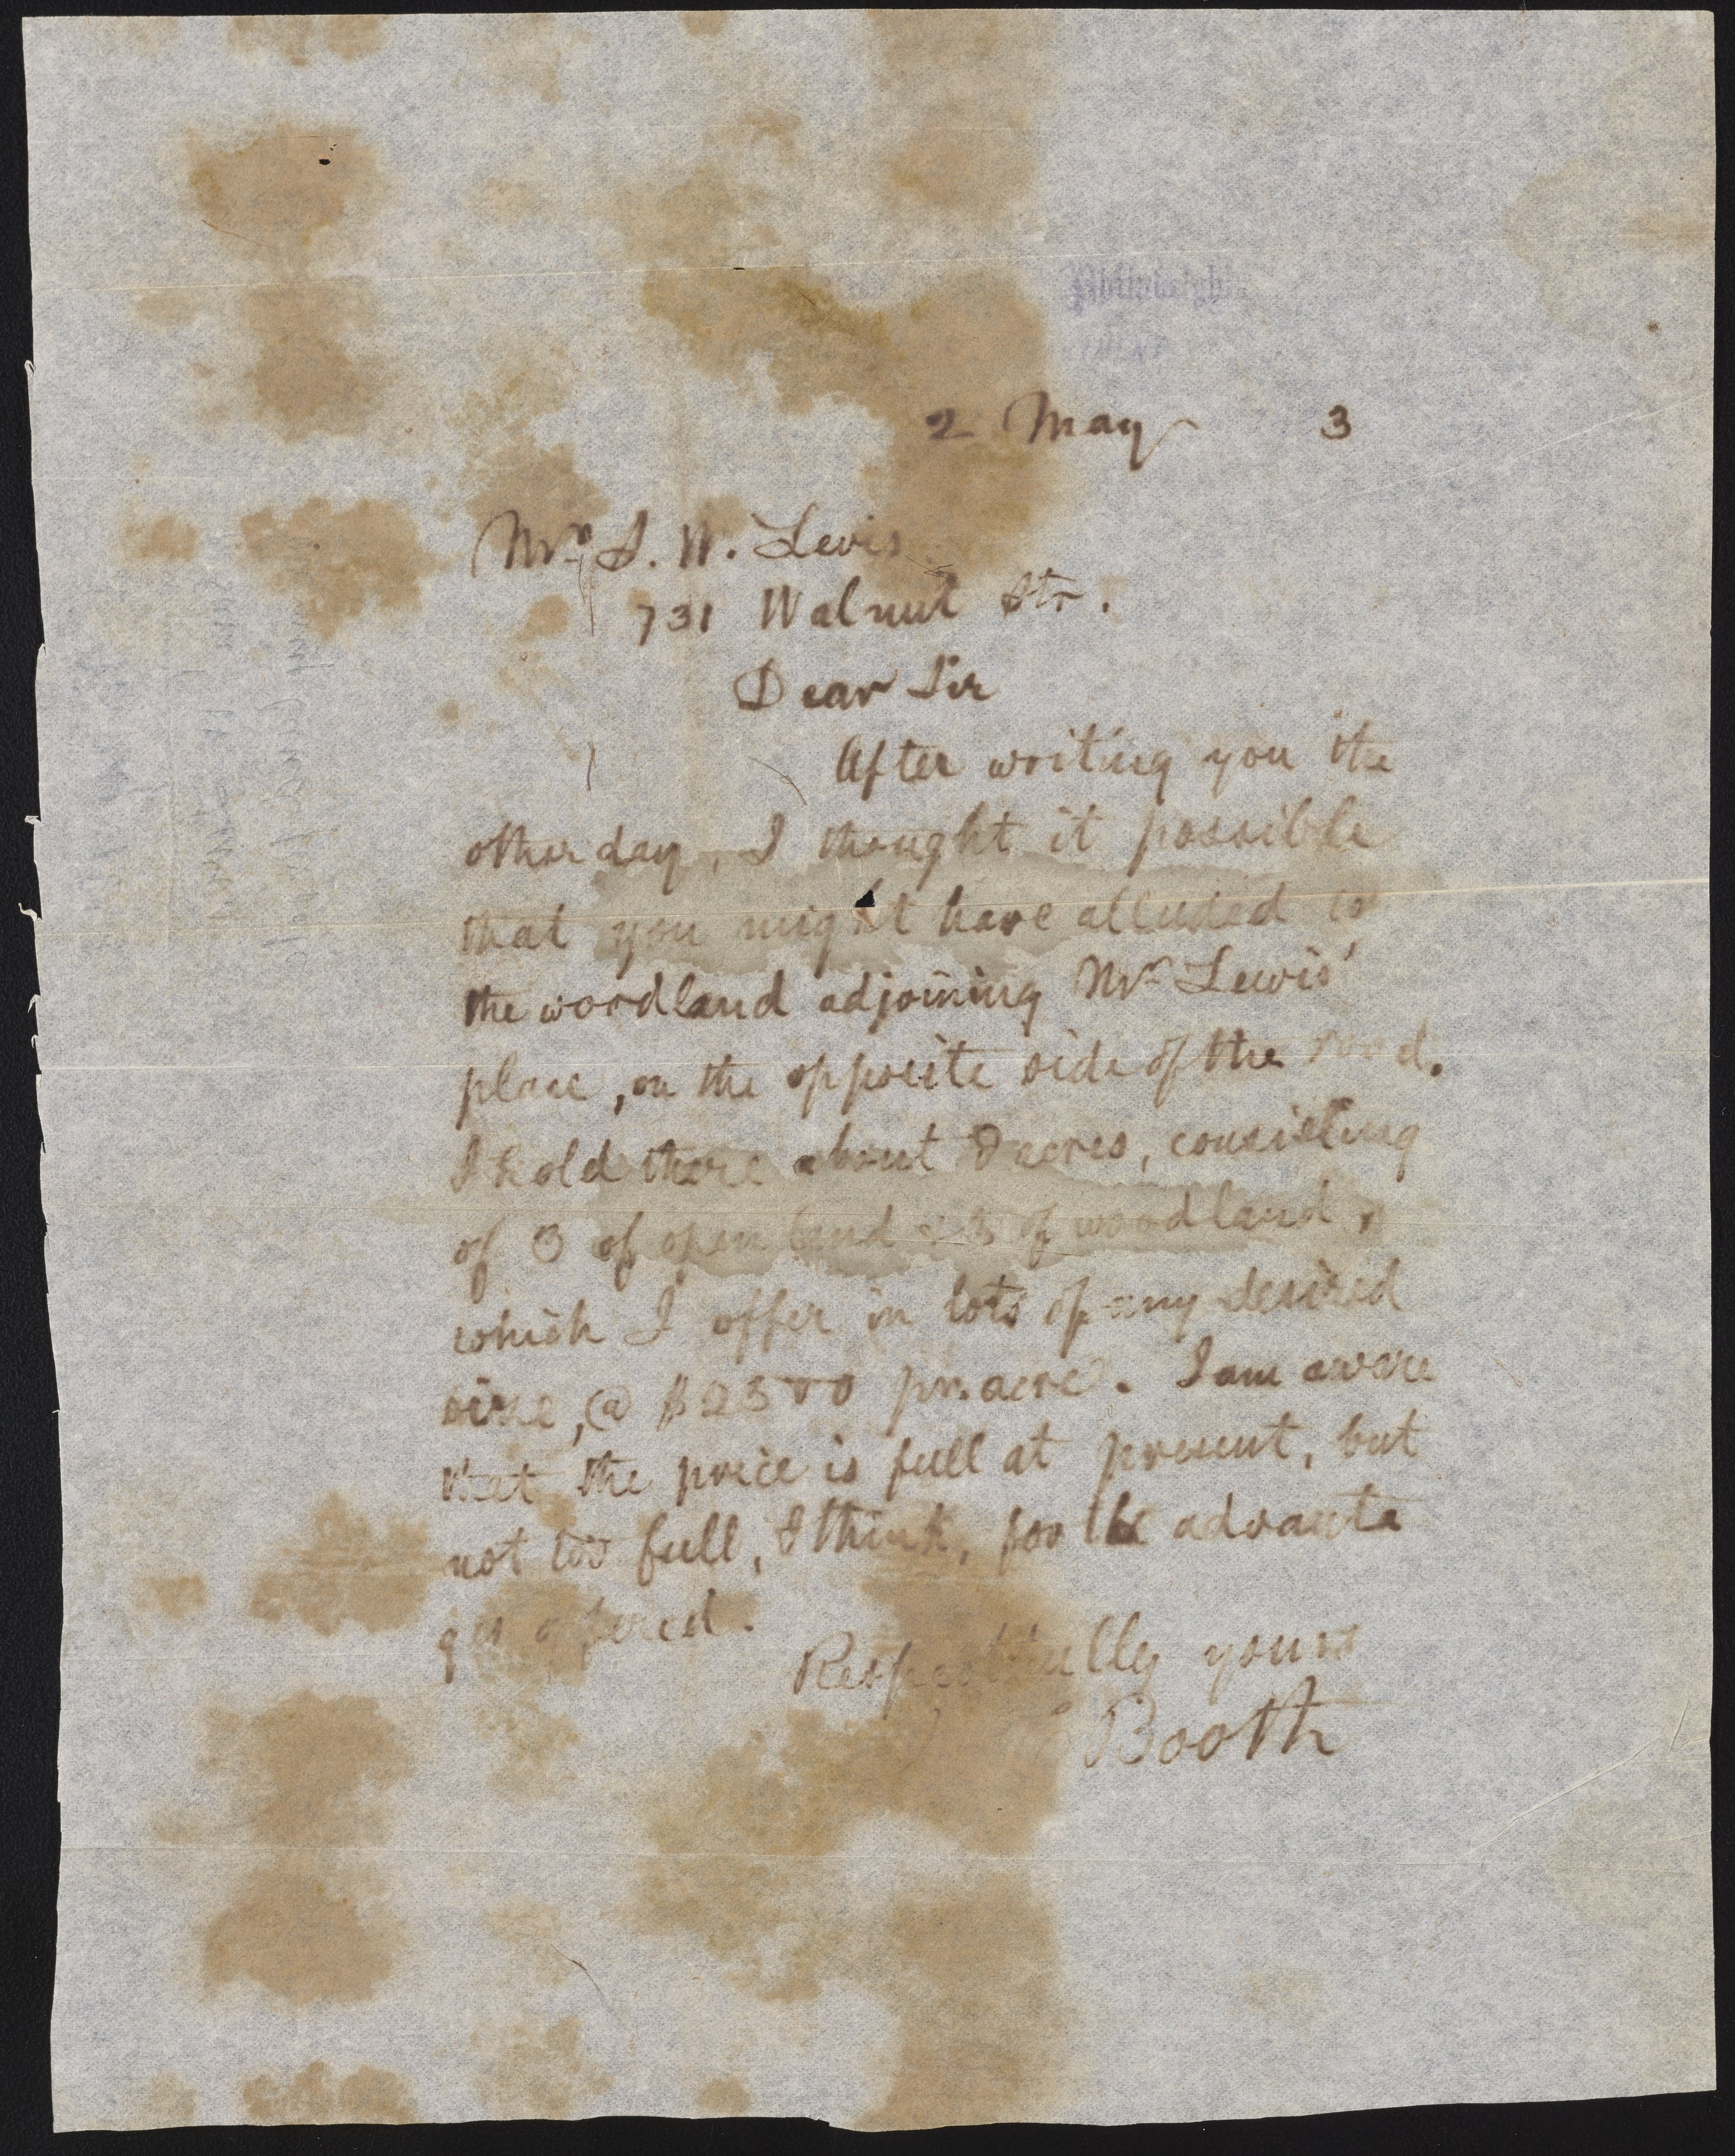 Philadelphia
2 May 3
Mr. S. W. Levis
731 Walnut Str.
Dear Sir
After writing you the
other day, I thought it possible
that you might have alluded to
the woodland adjoining Mr Lewis'
place, on the opposite side of the road.
I hold there about acres, consisting
of 3 of open land & 3 of woodland,
which I offer in lots of any desired
size, @ $2500 pr. acre. I am aware
that the price is full at present, but
not too full, I think, for the advanta
ges offered.
Respectfully yours
Booth